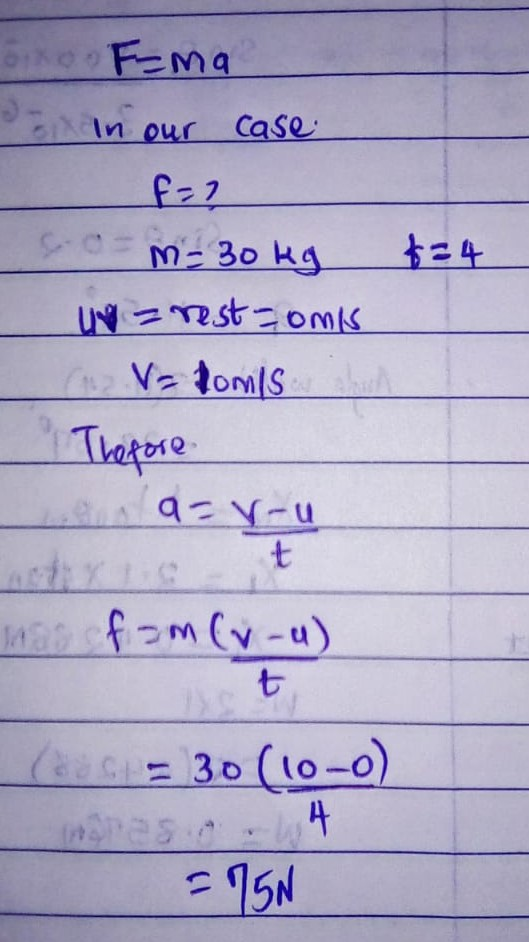 F=ma
in our case.
f=?
m=30 kg t=4
u = rest = 0m/s
V= 10m/s
Thefore.
a= v-u
t
f=m(v-u)
t
= 30(10-0)
4
= 75N